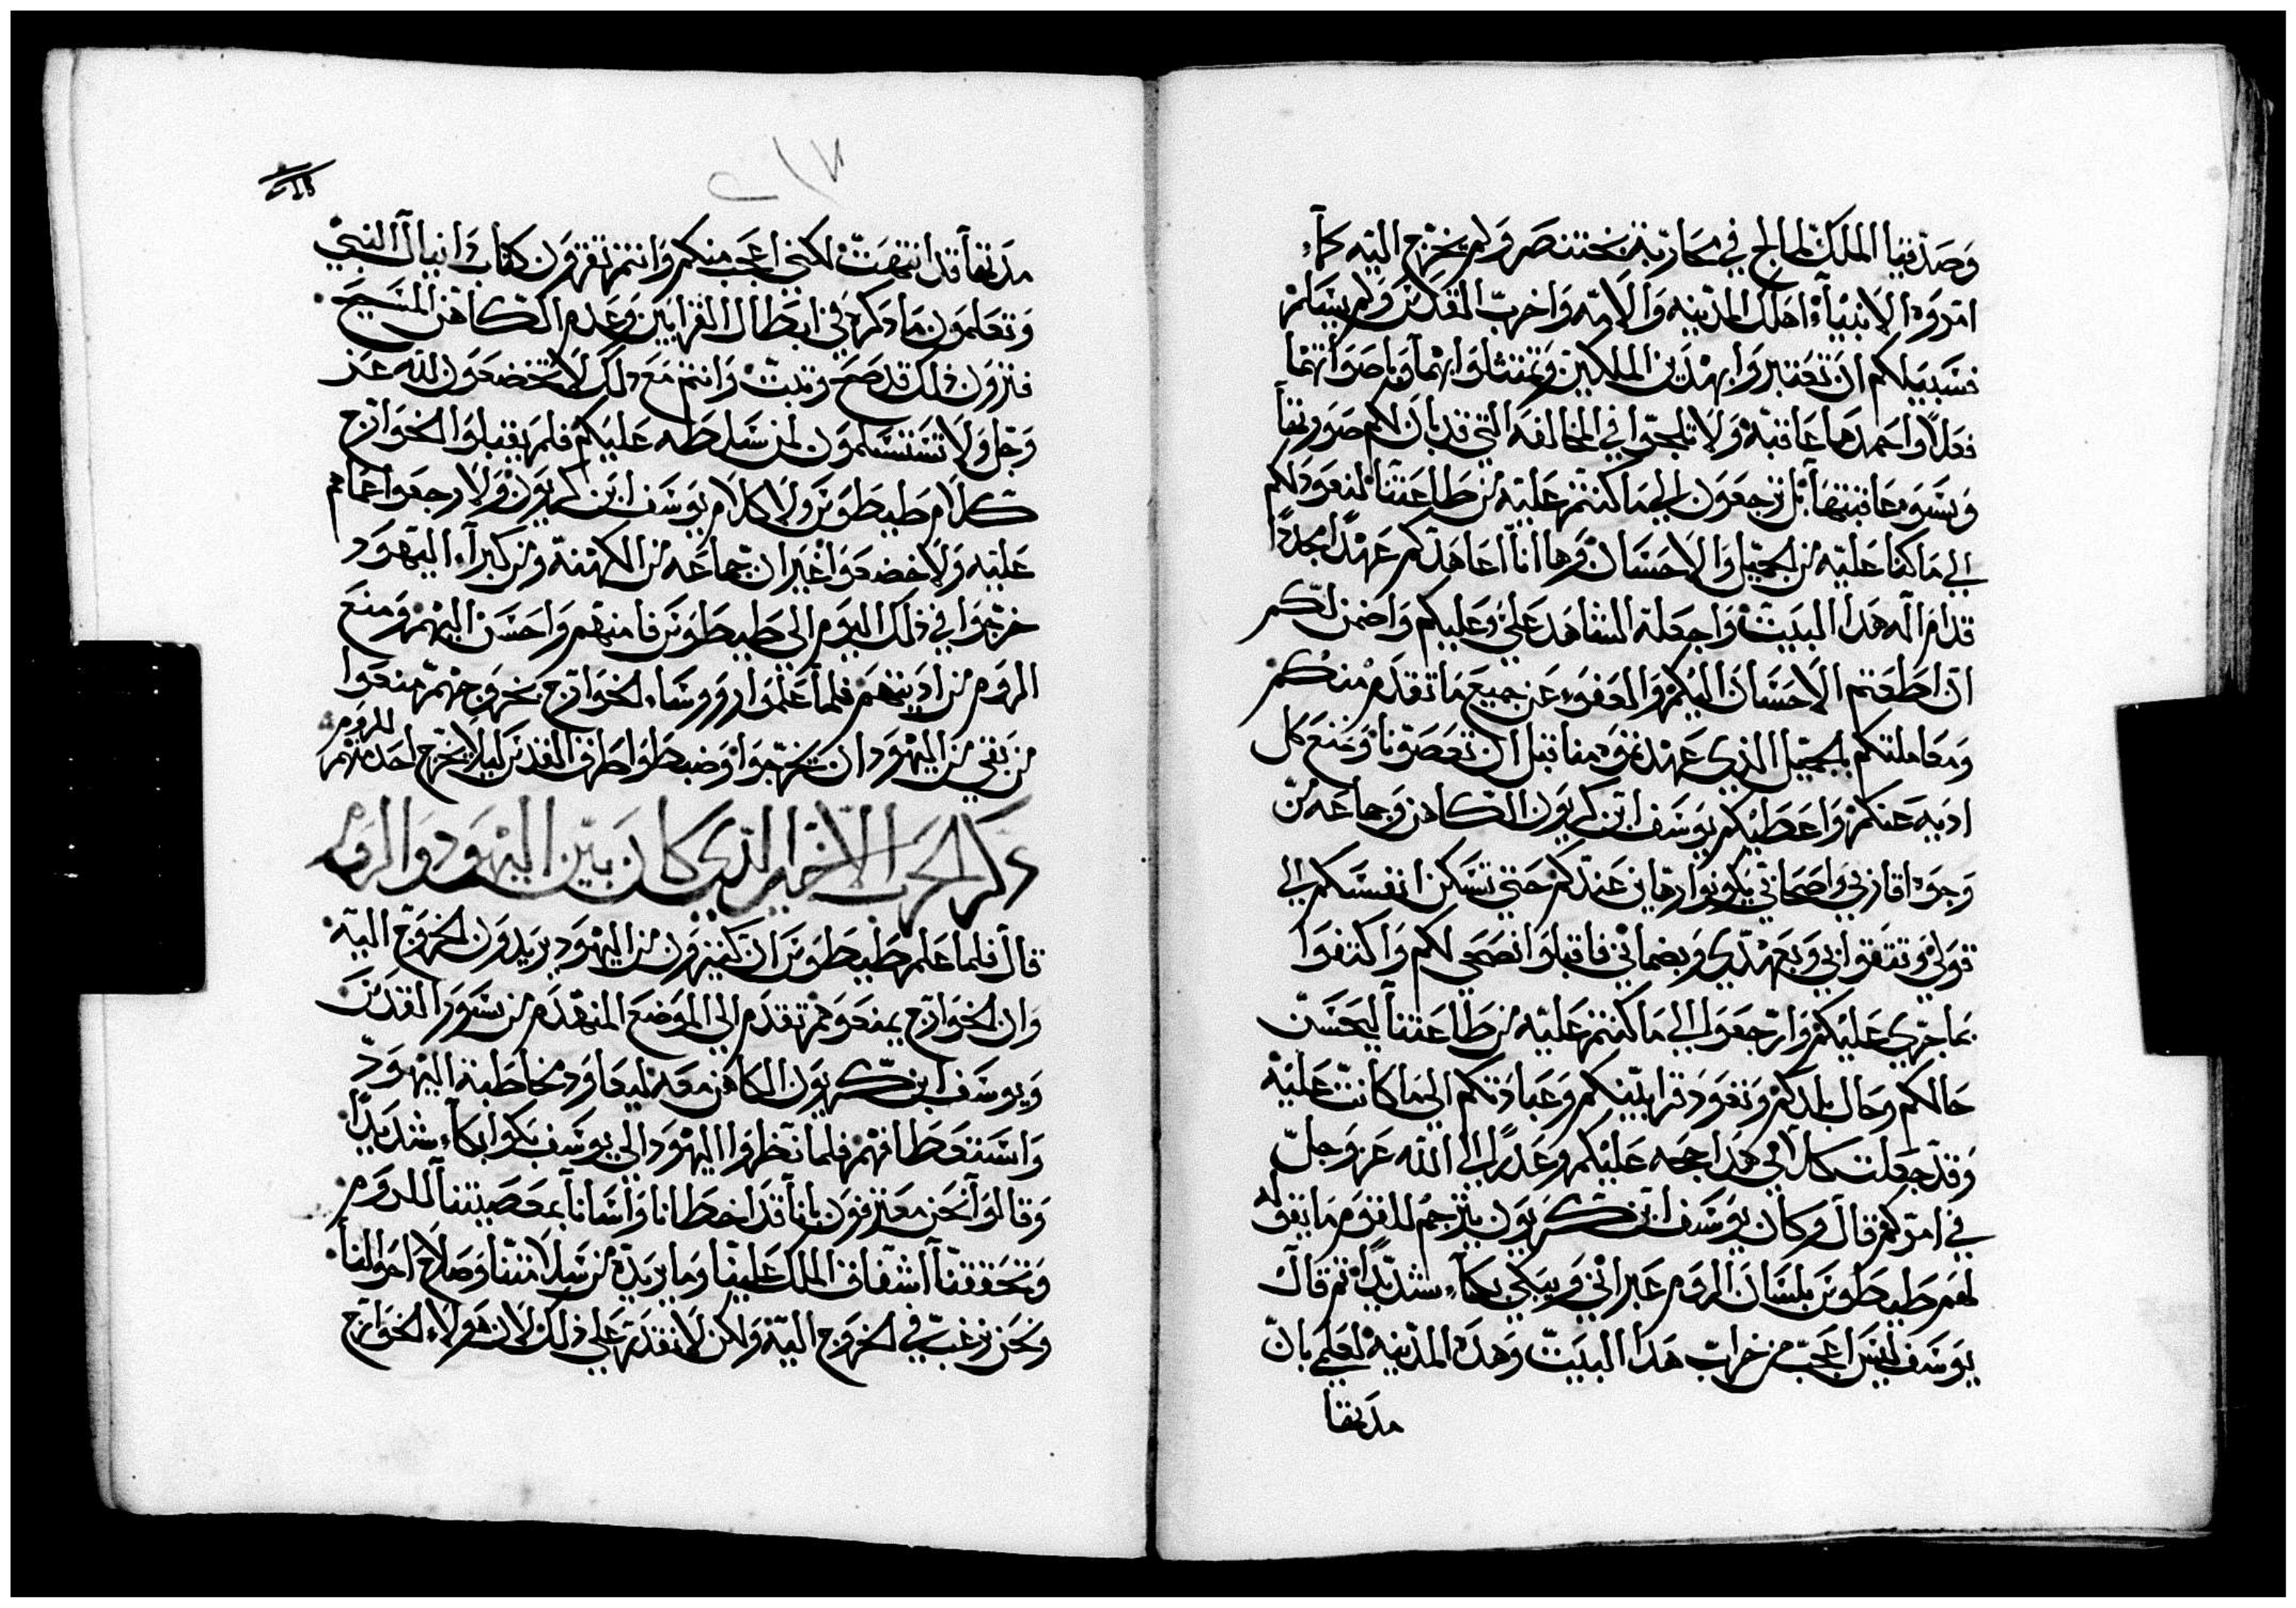 وصدقيا الملك لما لج في محاربة بختنصر ولم يخرج اليه كما
امروه الانبياء اهلك المدينه والامه واخرب القدس ولم يسلم
فسبيلكم ان تعتبروا بهذين الملكين وتمتثلوا بهما وباصوابهما
فعلا واحمدهما عاقبة ولا تلجوا في المخالفه التي قد بان لكم ضررها
وسوء عاقبتها بل ترجعون الى ما كنتم عليه من طاعتنا لنعود لكم
الى ما كنا عليه من الجميل والاحسان وها انا اعاهدكم عهدا مجددا
قدام اله هذا البيت واجعله الشاهد علي وعليكم واضمن لكم
ان اطعتم الاحسان اليكم والعفو عن جميع ما تقدم منكم
ومعاملتكم بالجميل الذي عهدتموه منا قبل ان تعصونا ونمنع كل
اديه عنكم واعطيكم يوسف ابن كريون الكاهن وجماعه من
وجوه اقاربي واصحابي يكونوا رهاين عندكم حتى تسكن انفسكم الى
قولي وتثقوا بي وبعهدي وبضماني فاقبلوا نصحي لكم واكتفوا
بما جري عليكم وارجعوا الى ما كنتم عليه من طاعتنا ليحسن
حالكم وحال بلدكم وتعود قرابينكم وعبادتكم الى ما كانت عليه
وقد جعلت كلامي هذا حجه عليكم وعذرا لي الى الله عز وجل
في امركم قال وكان يوسف ابن كريون يترجم للقوم ما يقوله
لهم طيطوس بلسان الروم عبراني ويبكي بكاء شديدا ثم قال
يوسف ليس اعجب من خراب هذا البيت وهذه المدينة لعلمي بان
مدتها
مدتها قد انتهت لكني اعجب منكم وانتم تقرون كتاب دانيال النبي
وتعلمون ما ذكره في ابطال القرابين وعدم الكاهن المسيح
فترون ذلك قد صح وثبت وانتم مع ذلك لا تخضعون لله عز
وجل ولا تستسلمون لمن سلطه عليكم فلم يقبلوا الخوارج
كلام طيطوس ولا كلام يوسف ابن كريون ولا رجعوا عما هم
عليه ولا خضعوا غير ان جماعه من الكهنة ومن كبراء اليهود
خرجوا في ذلك اليوم الى طيطوس فامنهم واحسن اليهم ومنع
الروم من اديتهم فلما علموا رووساء الخوارج بخروجهم منعوا
من بقي من اليهود ان يخرجوا وضبطوا طرق القدس ليلا يخرج احد منهم للروم
ذكر الحرب الاخير الذي كان بين اليهود والروم
قال فلما علم طيطوس ان كثيرون من اليهود يريدون الخروج اليه
وان الخوارج يمنعوهم تقدم الى الموضع المنهدم من سور القدس
ويوسف ابن كريون الكاهن معه ليعاود مخاطبة اليهود
واستعطافهم فلما نظروا اليهود الى يوسف بكوا بكاء شديدا
وقالوا نحن معترفون باننا قد اخطانا واسانا بمعصيتنا للروم
وتحققنا اشفاق الملك علينا وما يريده من سلامتنا وصلاح احوالنا
ونحن نرغب في الخروج اليه ولكن لا نقدر على ذلك لان هولاء الخوارج